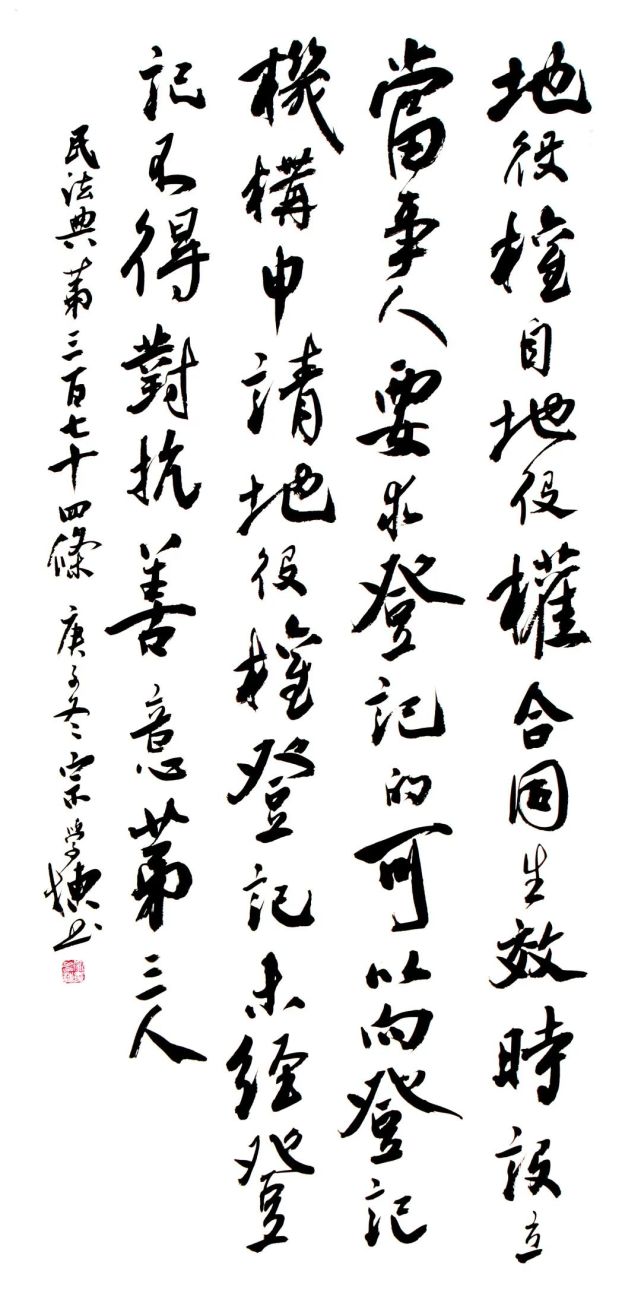 地役權自地役權合同生效時設立
當事人要求登記的可以向登記
機構申請地役權登記未經登
記不得對抗善意第三人
民法典第三百七十四條 庚子冬 宗學棟书